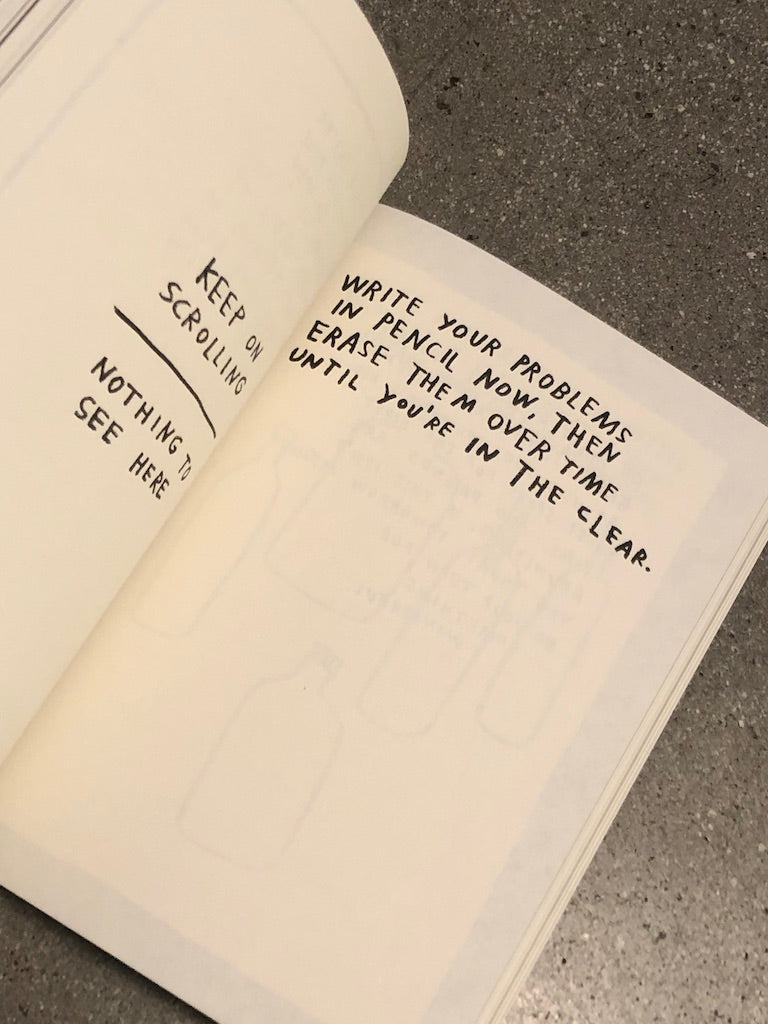 KEEP ON
SCROLLING
NOTHING TO
SEE HERE
WRITE YOUR PROBLEMS
IN PENCIL NOW, THEN
ERASE THEM OVER TIME
UNTIL YOU'RE IN THE CLEAR.